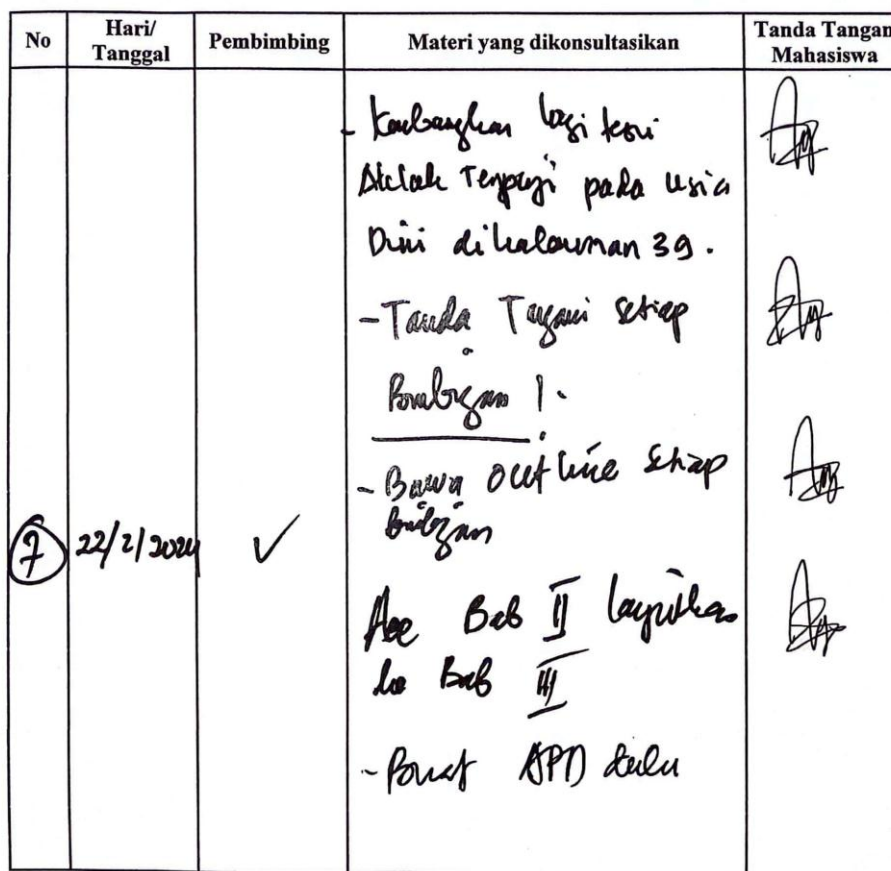 No
Hari/
Tanggal
Pembimbing
Materi yang dikonsultasikan
Tanda Tangan
Mahasiswa
- Kembangkan lagi teori
Akhlak Terpuji pada usia
Dini di halaman 39.
- Tanda Tangani setiap
Bimbingan !.
- Bawa outline setiap
bimbingan
7
22/2/2024
✓
Acc Bab II lanjutkan
ke Bab III
- Buat APD dulu